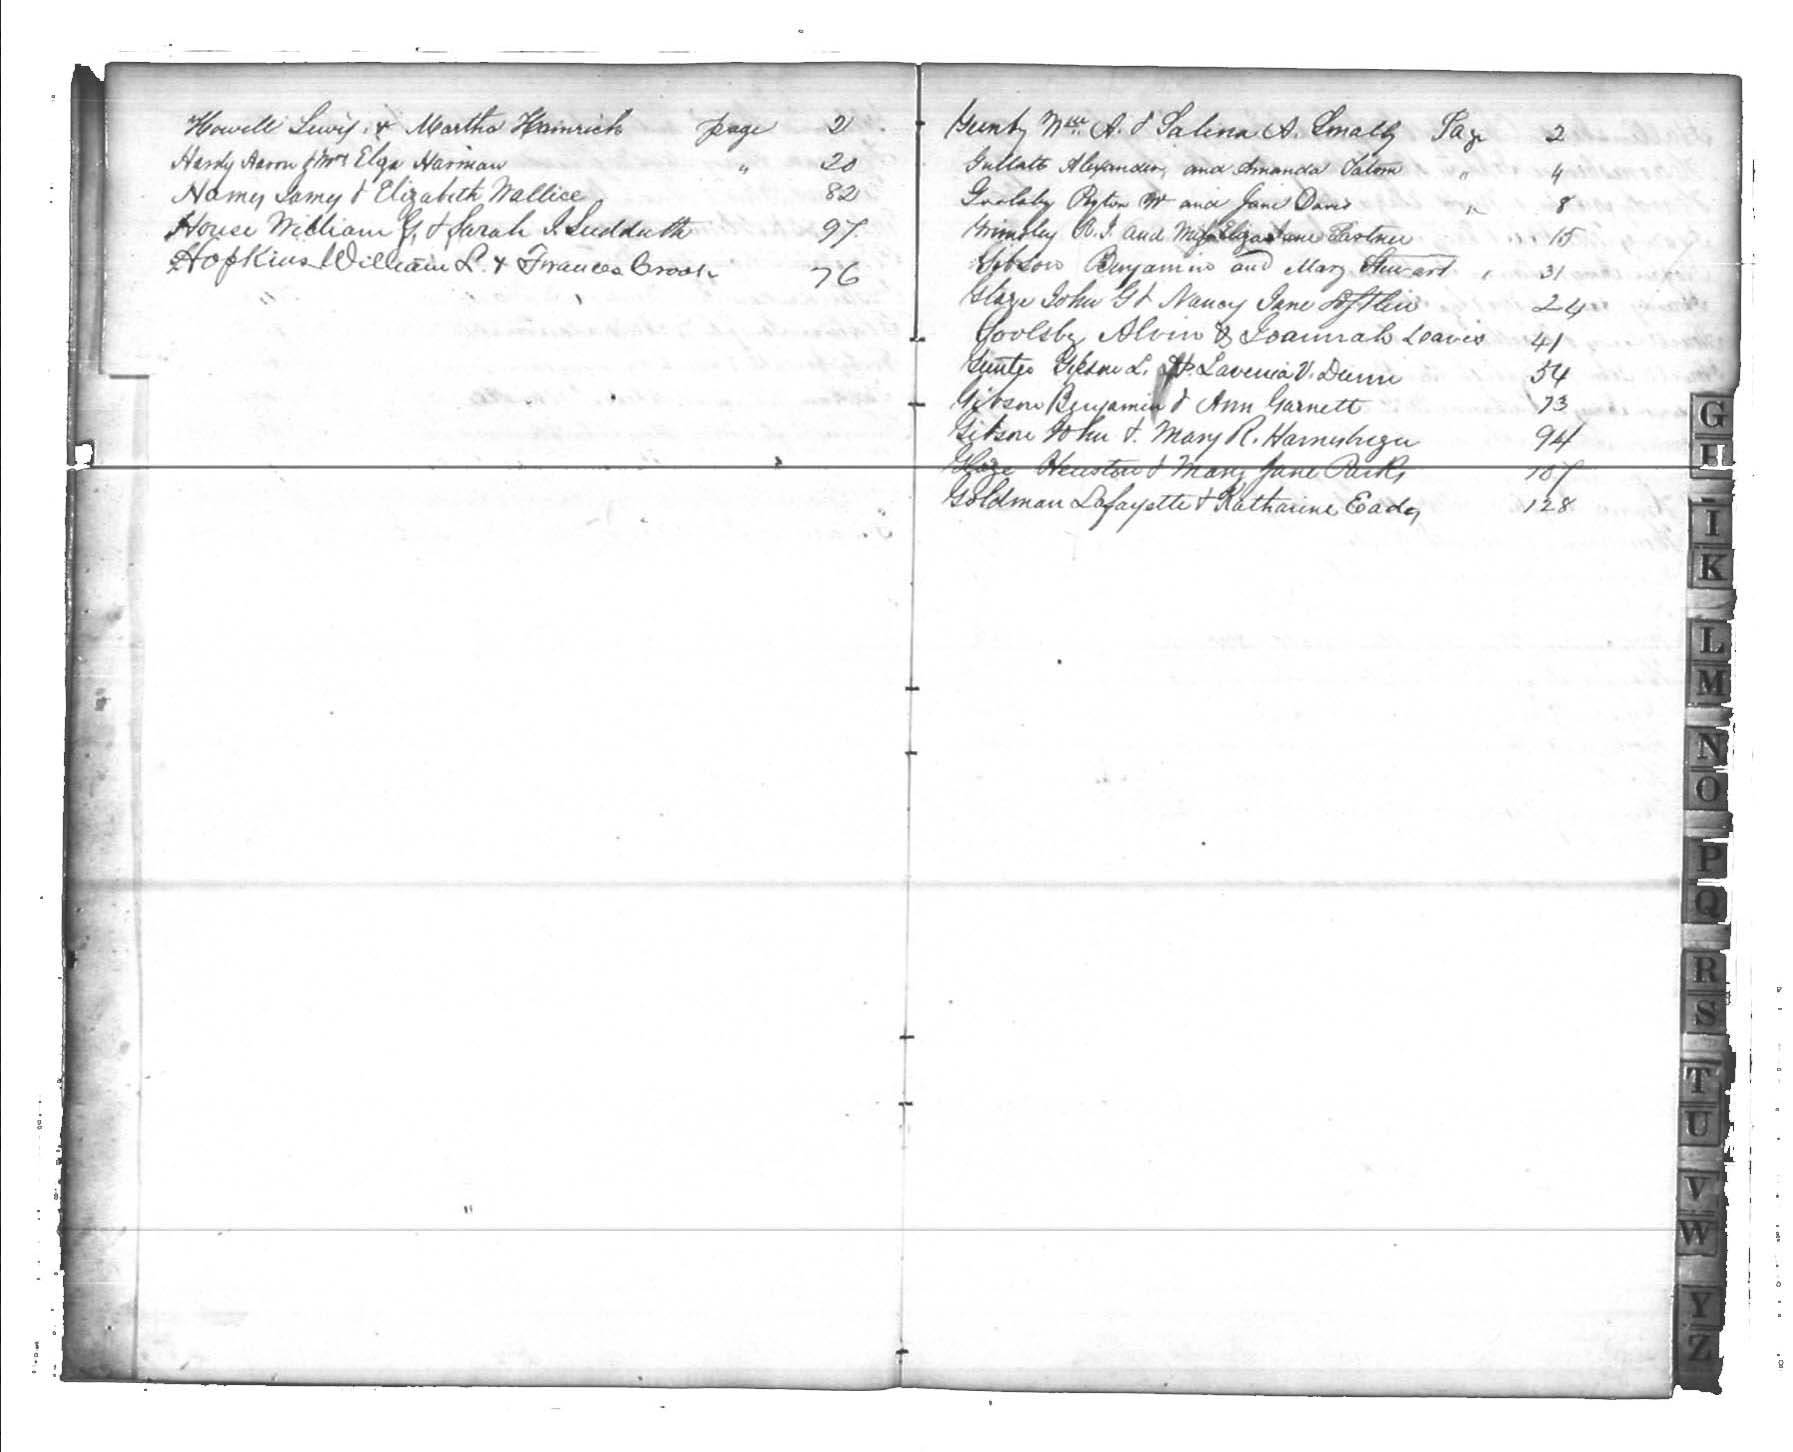 Howell Lewis & Martha Heinrich page 2
Hardy Aaron & Mrs Elza Harman " 20
Hames James & Elizabeth Wallice 82
House William G. & Sarah J. Sudduth 97
Hopkins William L. & Frances Brook 76
Gunty Wm A. & Salina A. Smally Page 2
Gullatt Alexander and Amanda Tatom " 4
Peyton W and Jane Davis " 8
Grimsley R. J. and Miss Eliza Jane Eastner 15
Gibson Benjamin and Mary Stewart " 31
Glaze John G & Nancy Jane 24
Goolsby Alvin & Joannah Leavis 41
Gunter L. Lavenia V. Dunn 54
Gibson Benjamin & Ann Garnett 73
Gibson John & Mary R. 94
Glaze Heuston & Mary Jane Parks 107
Goldman Lafayette & Katharine Eady 128
G
H
I
K
L
M
N
O
P
Q
R
S
T
U
V
W
Y
Z